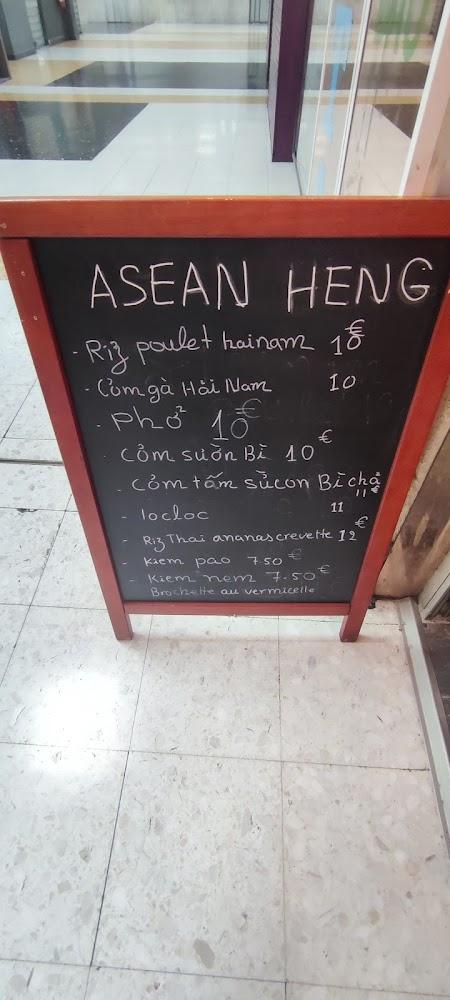 ASEAN HENG
- Riz poulet hainam 10€
- Cơm gà Hải Nam 10
- Phở² 10€
Cơm sườn Bì 10€
- Cơm tấm sủcon Bì chả 11€
- loc loc 11
- Riz Thai ananas crevette 12€
- Kiem pao 750€
- Kiem nem 7.50€
Brochette au vermicelle